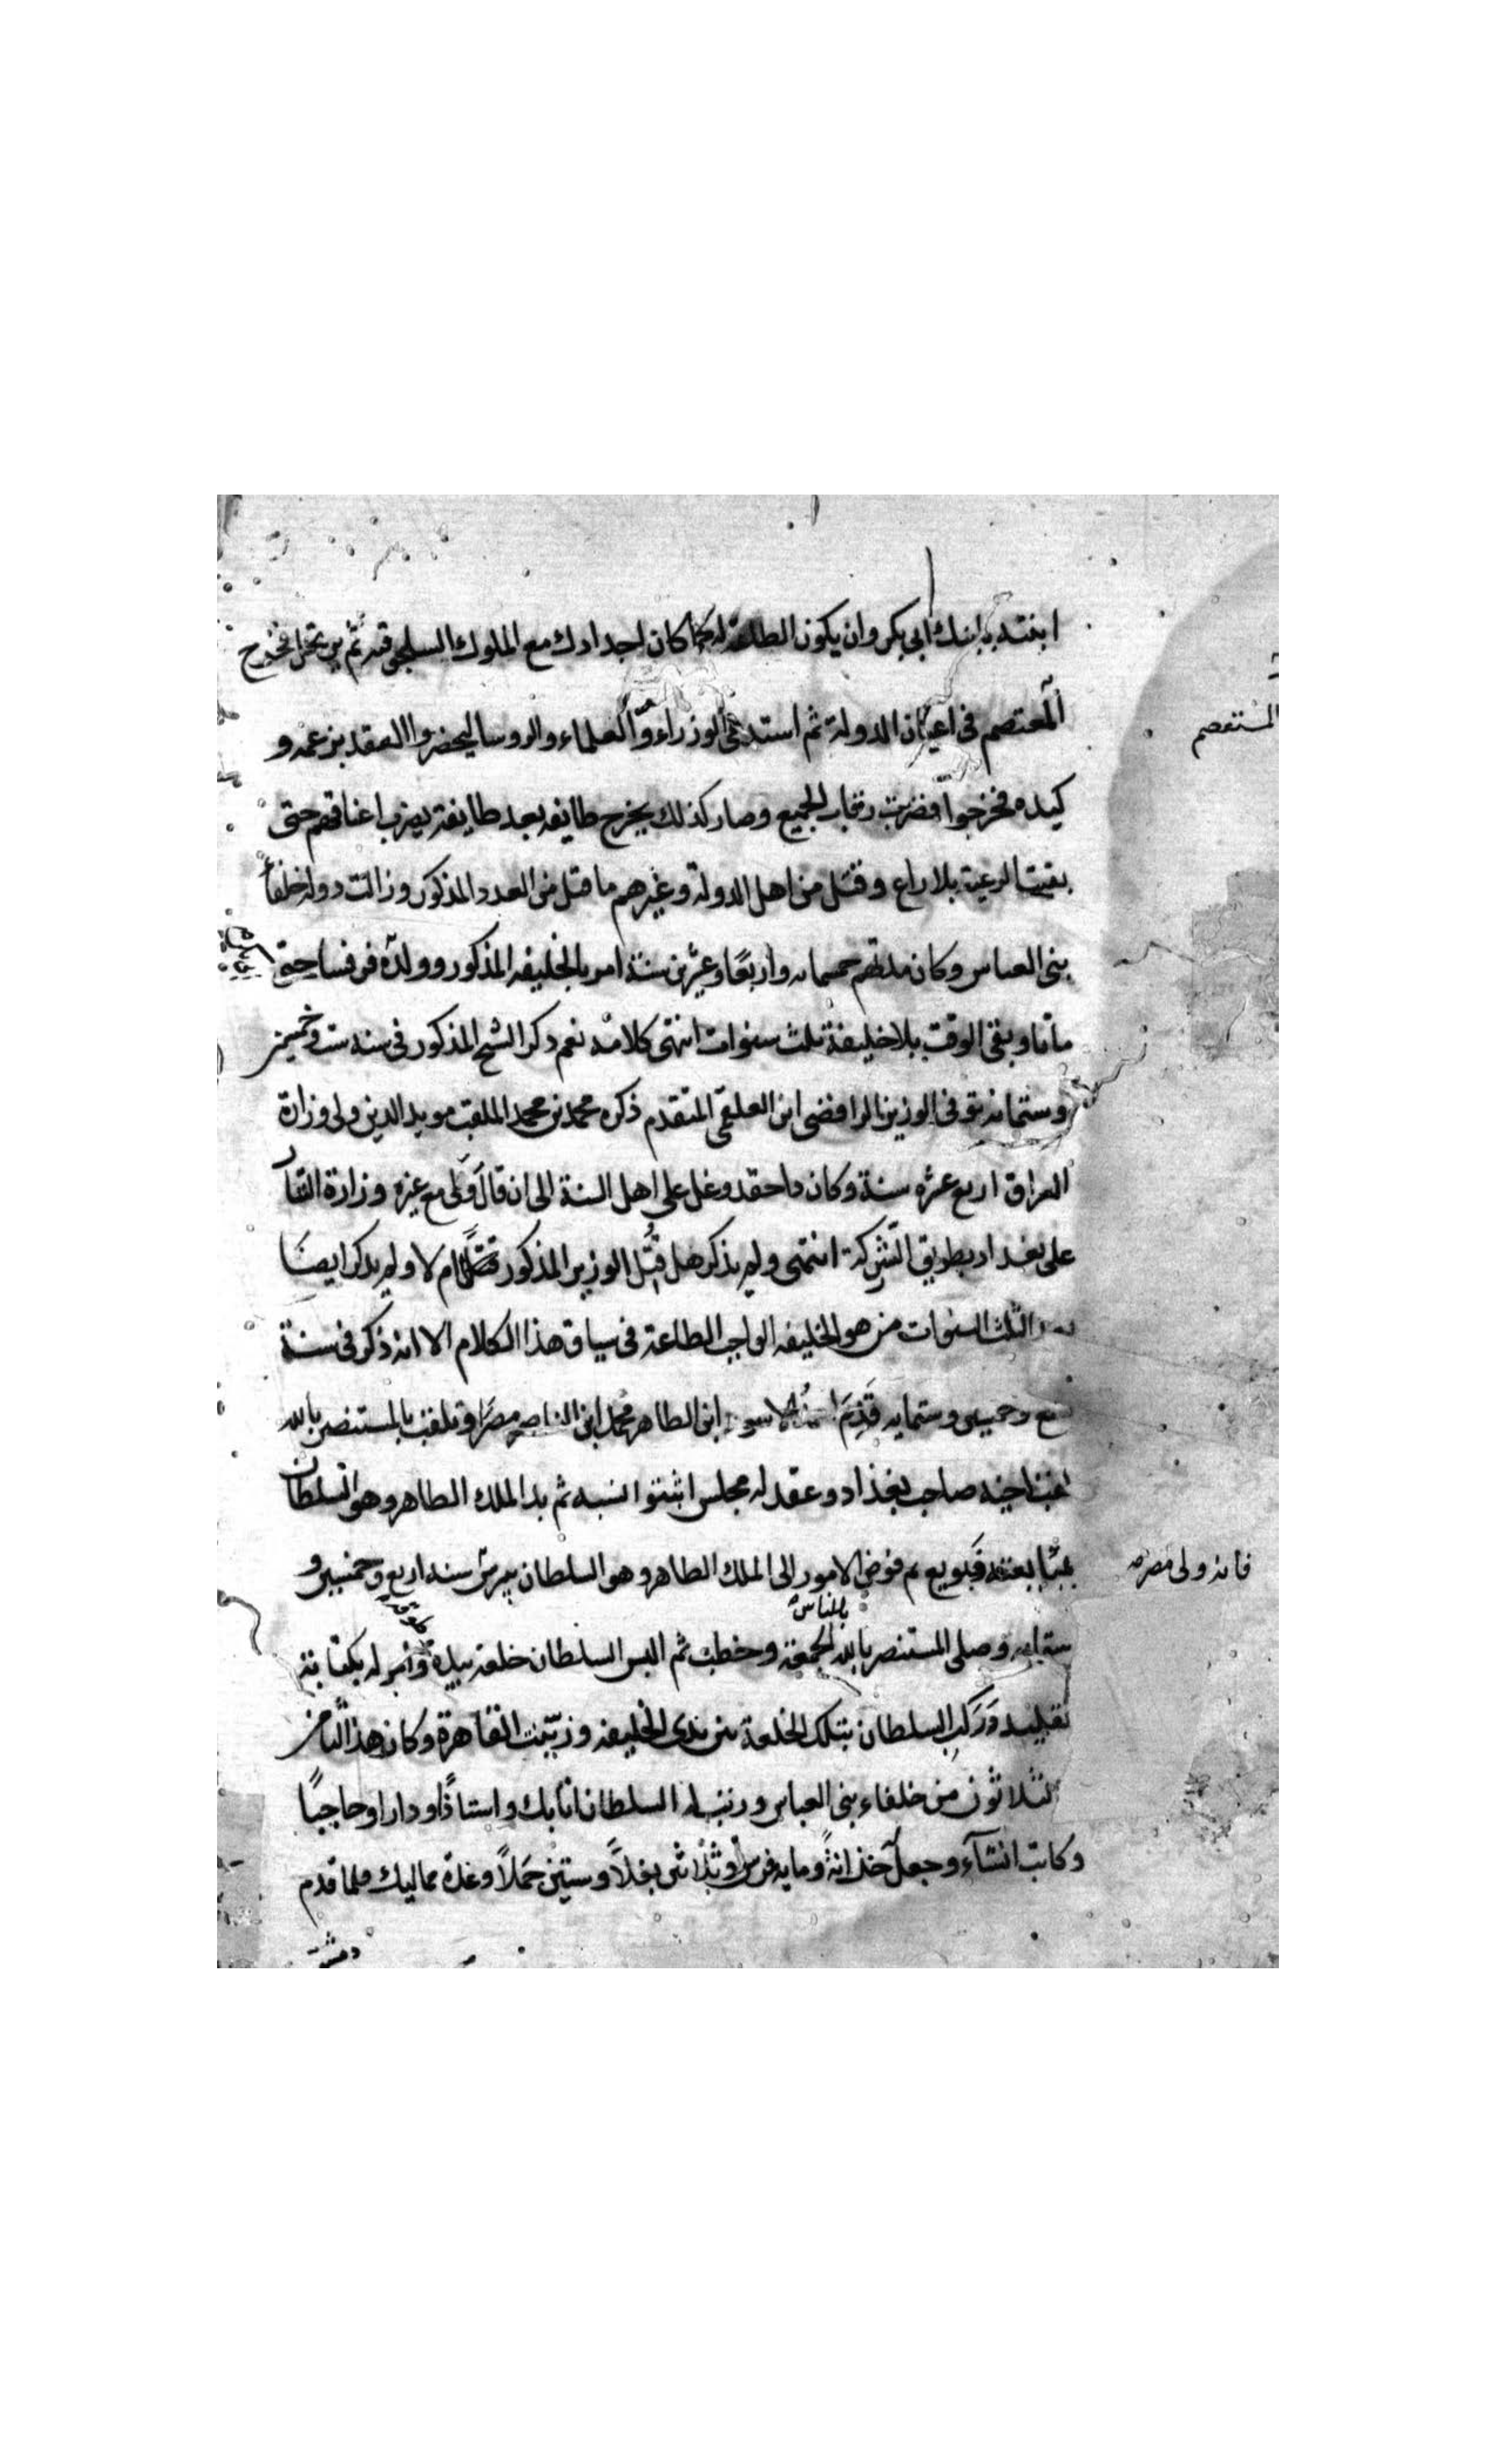 ابنته بابنك ابي بكر وان يكون الطاعة له كما كان لجدادك مع الملوك السلجوقيه ثم فخرج
المعتصم في اعيان الدولة ثم استدعى الوزراء والعلماء والروسا ليحضروا العقد بزعمه و
المستعصم
كيده فخرجوا فضربت رقاب الجميع وصار كذلك يخرج طايفه بعد طايفة يضرب اعناقهم حتى
بقيت الرعية بلا راع وقتل من اهل الدولة وغيرهم ما قتل من العدد المذكور وزالت دولة خلفاء
بني العباس وكان مدتهم خمسمايه واربعا وعشرين سنة امر بالخليفه المذكور وولده فرفسا حتى
ماتا وبقي الوقت بلا خليفة ثلث سنوات انتهى كلامه نعم ذكر الشيخ المذكور في سنه ست وخمسين
وستمائة توفي الوزير الرافضي ابن العلقمي المتقدم ذكره محمد بن محمد الملقب مويد الدين ولي وزارة
العراق اربع عشره سنة وكان ذا حقد وغل على اهل السنة الى ان قال ولي مع غيره وزارة التتار
على بغداد بطريق الشركة انتهى ولم يذكر هل قتل الوزير المذكور ام لا ولم يذكر ايضا
بعد الثلث السنوات من هو الخليفه الواجب الطاعة في سياق هذا الكلام الا انه ذكر في سنة
تسع وخمسين وستمايه قدم ابن الظاهر محمد ابن الناصر مصر وتلقب بالمستنصر بالله
اخيه صاحب بغداد وعقد له مجلس اثبتوا نسبه ثم بدا الملك الظاهر وهو السلطان
فبويع ثم فوض الامور الى الملك الظاهر وهو السلطان بيبرس سنه اربع وخمسين و
فانه ولي مصر
ستمايه وصلى المستنصر بالله بالناس الجمعة وخطب ثم البس السلطان خلعة بيده وامر له بكتابة
تقليد وركب السلطان بتلك الخلعة بين يدي الخليفه وزينت القاهرة وكان هذا الثامن
الثلاثون من خلفاء بني العباس ورتب له السلطان اتابك واستاذا ودارا وحاجبا
وكاتب انشاء وجعل خزانة ومايه فرس وثلاثين بغلا وستين جملا وعدة مماليك فلما قدم
دمشق